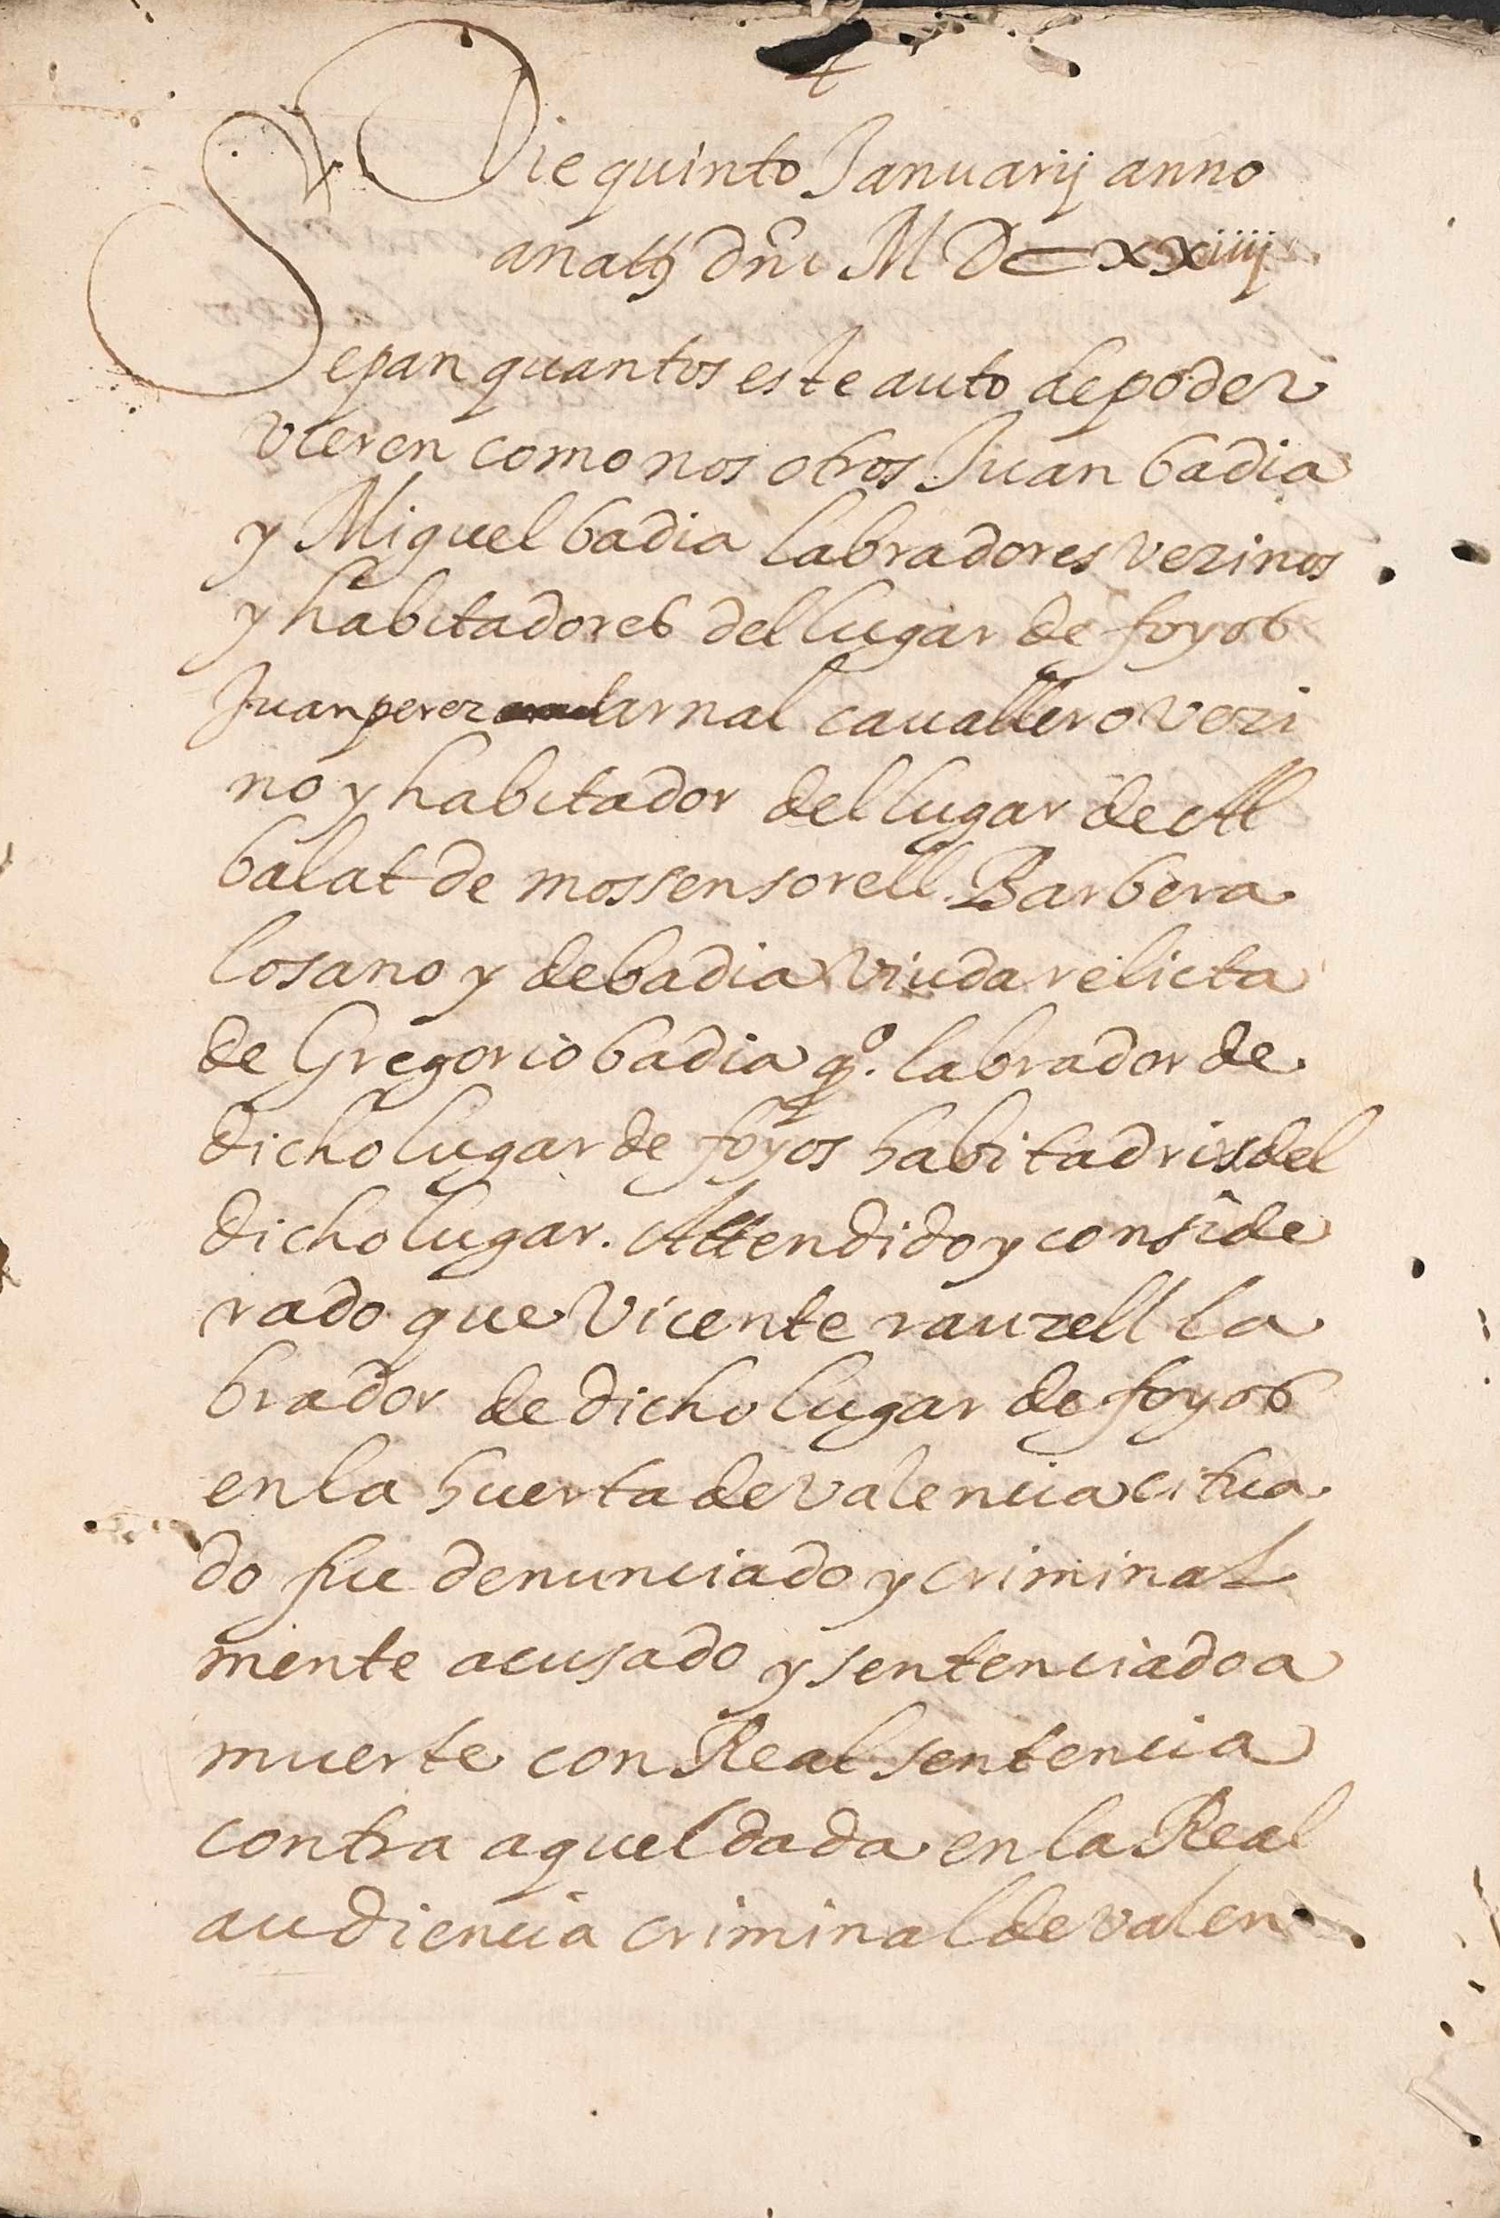 Die quinto Januarij anno
a natᵗ dñi MDCxxiiij
Sepan quantos este auto de poder
vieren como nos otros Juan badia
y Miguel badia labradores vezinos
y habitadores del lugar de foyos
Juan perez arnal cauallero vezi
no y habitador del lugar de Al
balat de mossen sorell. Barbera
losano y de badia viuda relicta
de Gregorio badia qº. labrador de
dicho lugar de foyos habitadris del
dicho lugar. Attendido y conside
rado que Vicente rauzell la
brador de dicho lugar de foyos
en la huerta de valencia citua
do fue denunciado y criminal
mente acusado y sentenciado a
muerte con Real sentencia
contra aquel dada en la Real
audiencia criminal de valen